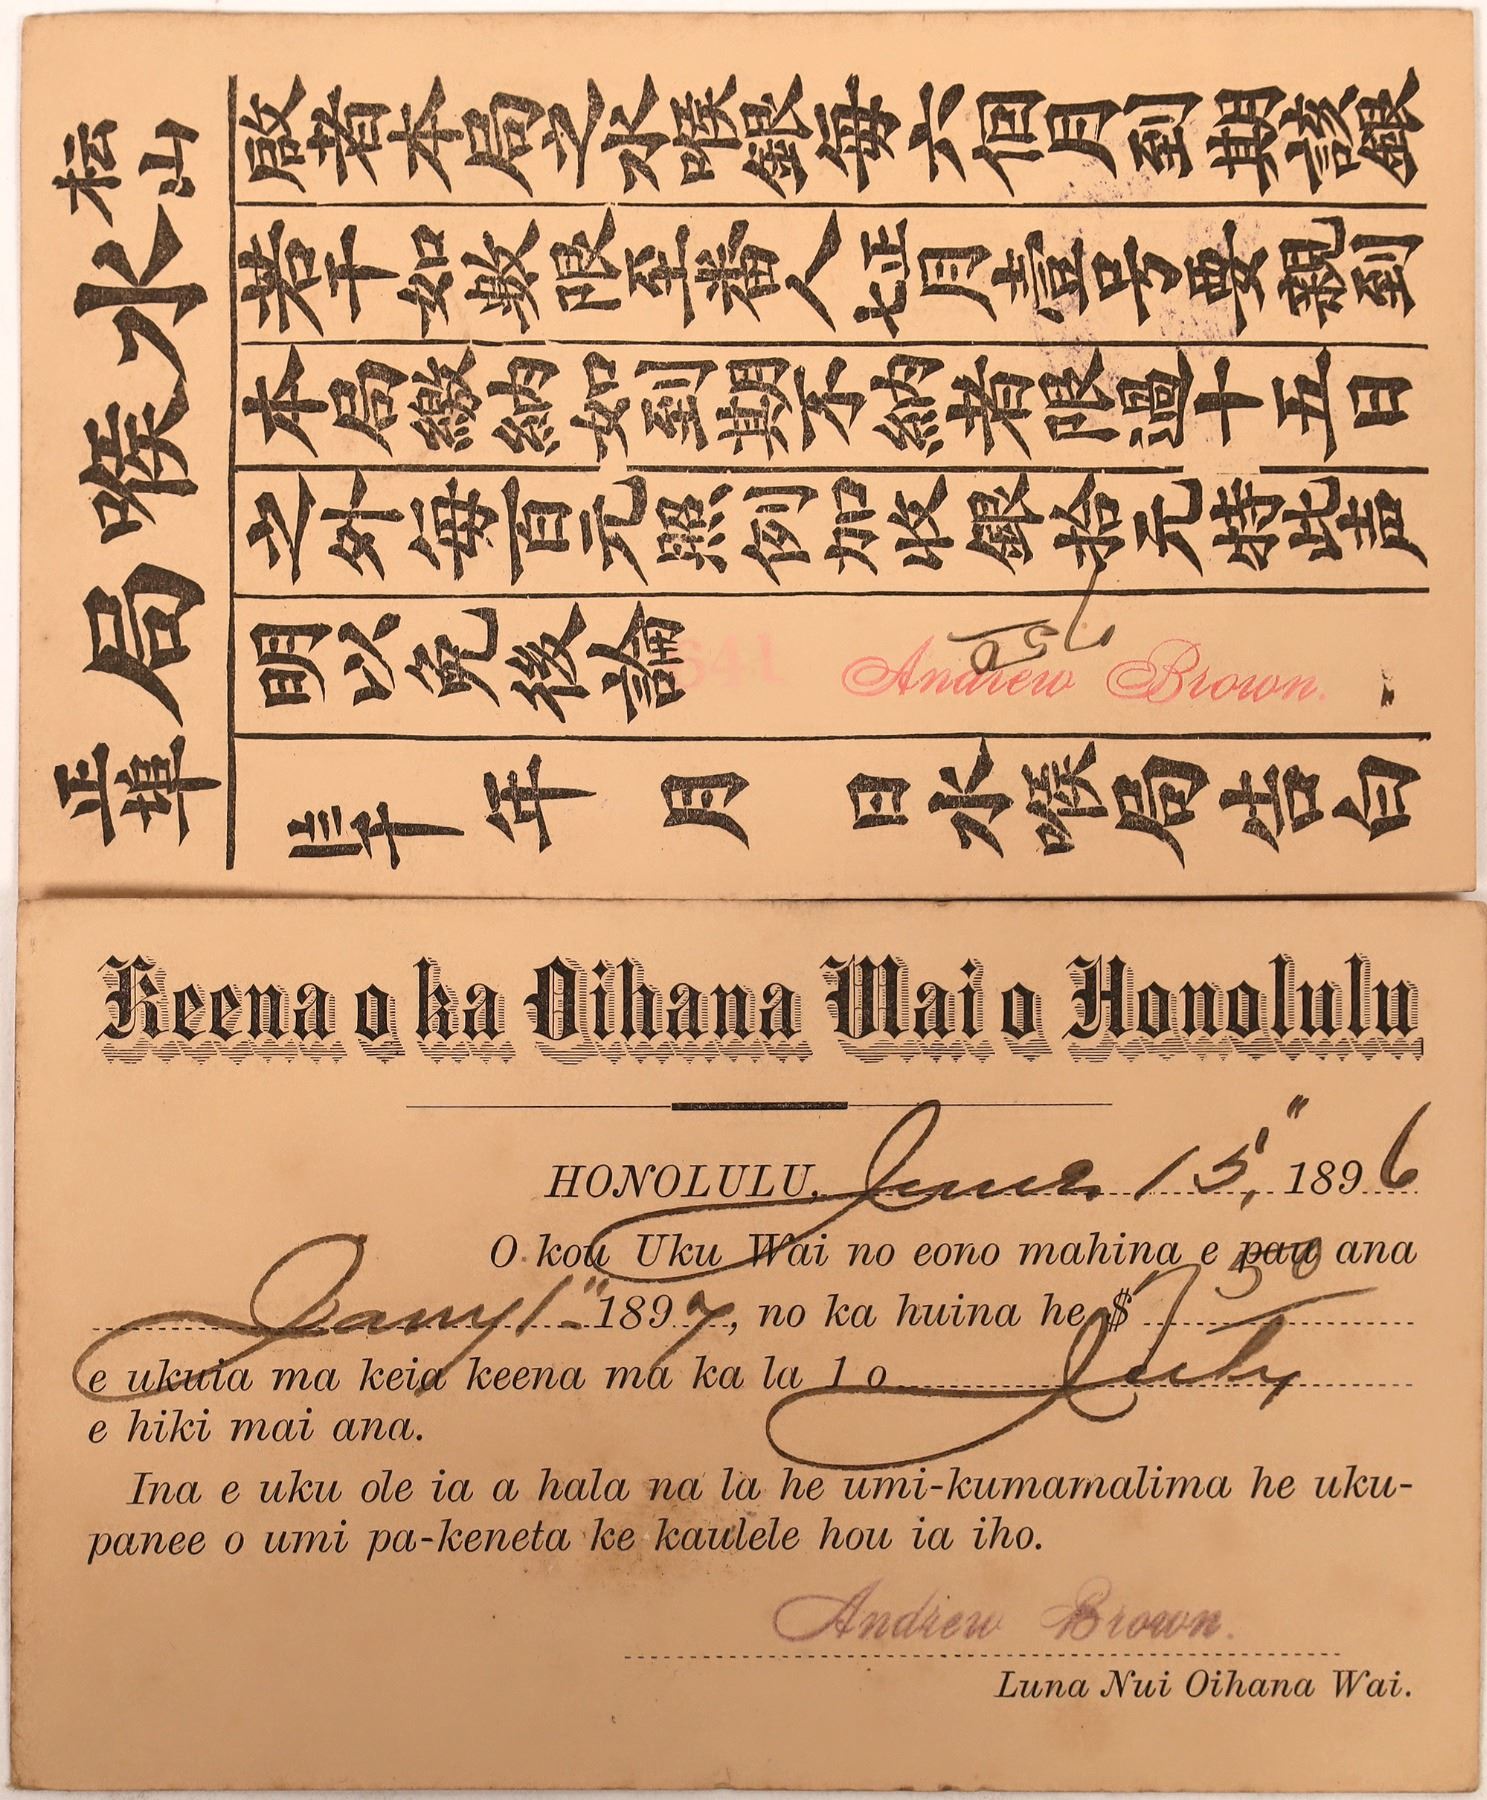 枟山水喉局正埠
啟者本局之水喉銀每六個月到期該銀
若干如數限至番人正七月壹号要親到
本局繳納如到期不納若限過十五日
之外每百元照例加收銀拾元特此告
明以免後論
641 Andrew Brown.
年 月 日水喉局告白
Keena o ka Oihana Wai o Honolulu
HONOLULU, June 15", 1896
O kou Uku Wai no eono mahina e pau ana
Jany 1" 1897, no ka huina he $ 7 50
e ukuia ma keia keena ma ka la 1 o July
e hiki mai ana.
Ina e uku ole ia a hala na la he umi-kumamalima he uku-
panee o umi pa-keneta ke kaulele hou ia iho.
Andrew Brown.
Luna Nui Oihana Wai.